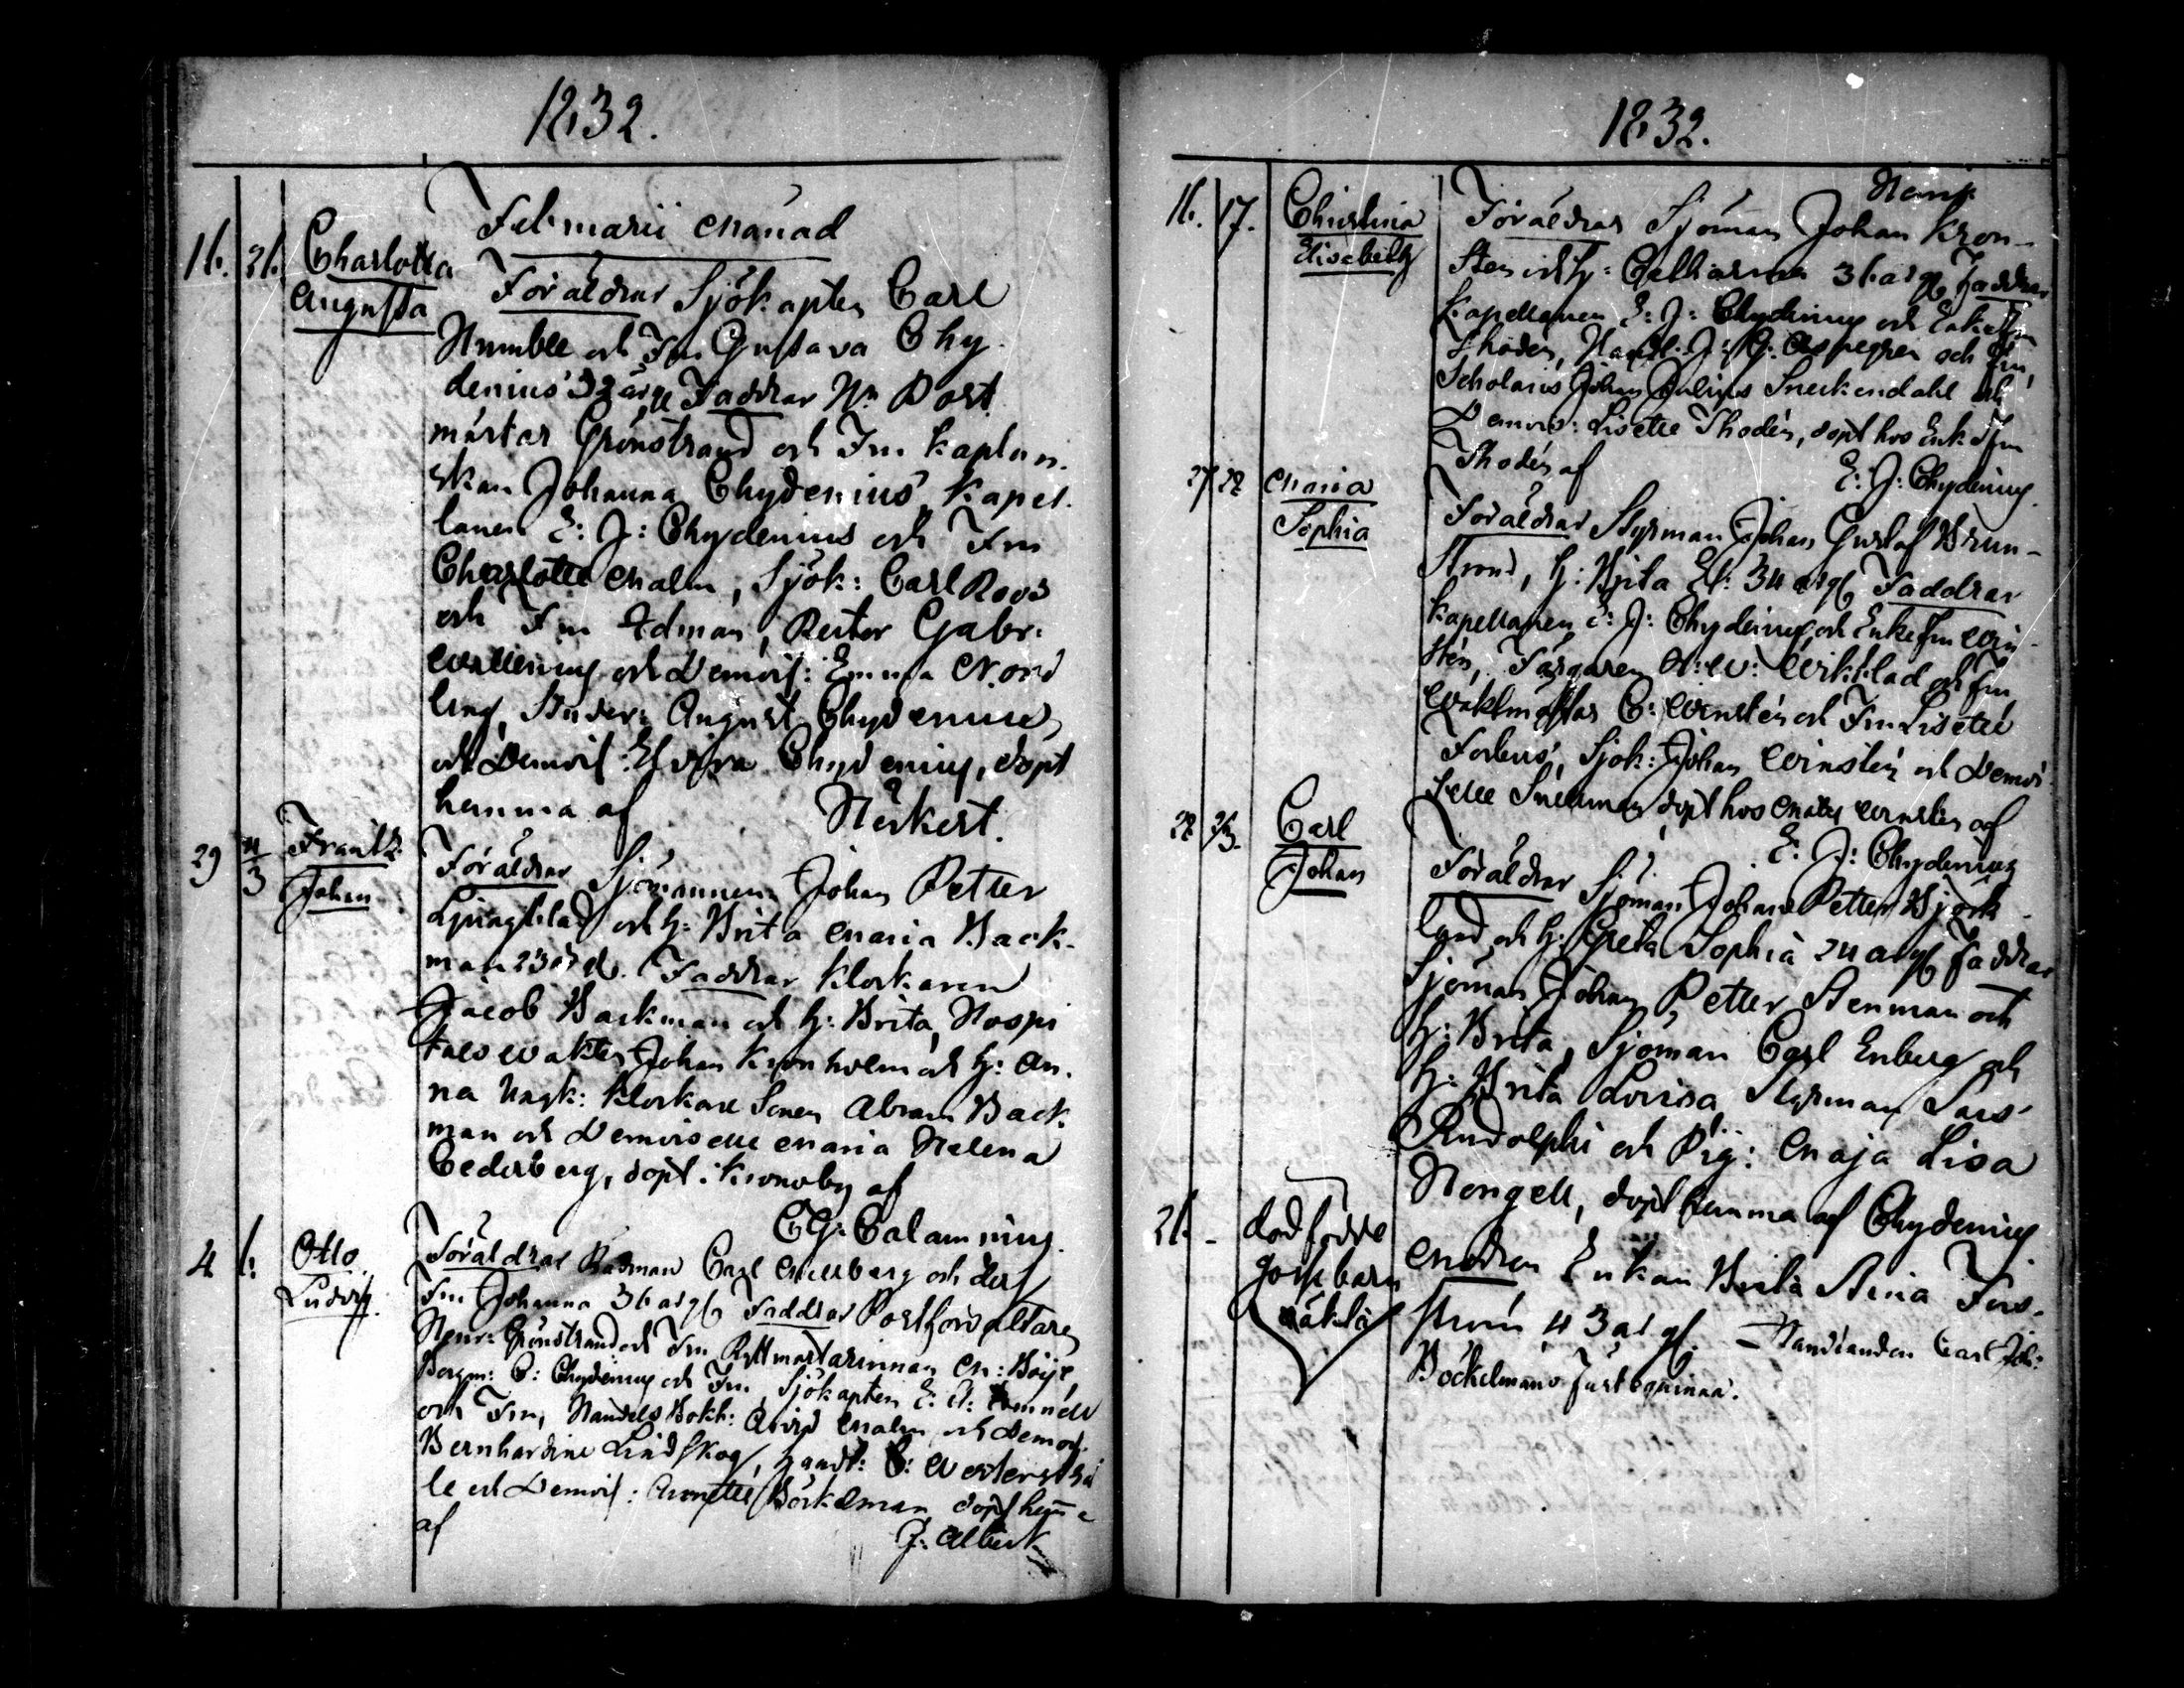 1832.
Februarii Månad
16. 26. Charlotta Föräldrar Sjökapten Carl
Augusta Humble och Fru Gustava Chy-
denius 32 år gl Faddrar Hr Post
mästar Grönstrand och Fru Kaplan-
skan Johanna Chydenius, Kapel-
lanen E: J: Chydenius och Fru
Charlotte Malm, Sjök: Carl Roos
och Fru Edman, Rector Gabr:
och Demois: Emma Nord
ling, Studer: August Chydenius
och Demois: Elvira Chydenius, döpt
hemma af Herkert.
29 4/3 Frantz Föräldrar Sjömannen Johan Petter
Johan Ljungblad och h: Brita Maria Back-
man 23 år gl. Faddrar Klockaren
Jacob Backman och h: Brita, Hospi
tals vakten Johan Kronholm och h: An-
na Ungk: Klockare Sonen Abram Back-
man och Demoiselle Maria Helena
Cederberg, döpt i Kronoby af
C G: Calamnius.
4 6: Otto Föräldrar Rådman Carl Mellberg och dess
Ludvig Fru Johanna 36 år gl Faddrar Postförvaltaren
Henr: Grönstrand och Fru Ryttmästarinnan M: Böije,
Borgm: C: Chydenius och Fru, Sjökapten E:
och Fru, Handels Bokh: Arvid Malm och Demois:
Bernhardine Lindskog, Handl:
le och Demois: Annette Böckelman, döpt hem̅a
af J: Albert
1832.
Hemf.
16. 17. Christina Föräldrar Sjöman Johan Kron-
Elisabeth Sten och h: Catharina 36 år gl Faddrar
Kapellanen E: J: Chydenius och Enkefru
Thodén, Handl: J: G: Aspegren och Fru,
Scholaris Johan Julius Sneckendahl och
Demois: Lisette Thodén, döpt hos Enk Fru
Thodén af E: J: Chydenius.
27 28 Maria Föräldrar Styrman Johan Gustaf Brun-
Sophia Strand, h: Brita El: 34 år gl Faddrar
Kapellanen E: J: Chydenius och Enkefru Win-
stén, Färgaren A: W: Wikblad och Fru
Waktmästar C: Winstén och Fru Lisette
Forbus, Sjök: Johan Winstén och Demoi
selle Snellman döpt hos Winstén af
E: J: Chydenius
28 2/3. Carl Föräldrar Sjöman Johan Petter Björk-
Johan lund och h: Greta Sophia 24 år gl Faddrar
Sjöman Johan Petter Stenman och
h: Brita, Sjöman Carl Enberg och
h: Brita Lovisa, Styrman Lars
Rudolphi och Pig: Maja Lisa
Hongell, döpt hemma af Chydenius
26. - dödfödde Modren Enkan Brita Stina Fors-
gosse barn ström 43 år gl. - Handlanden Carl Joh:
oäkta Böckelmans